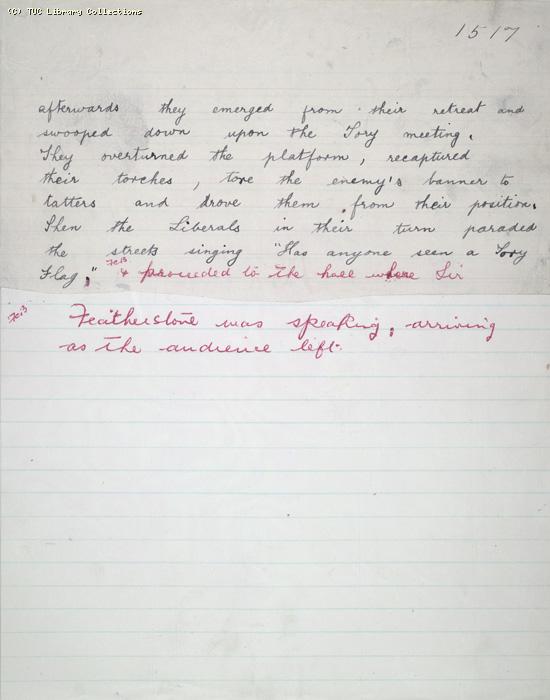 (C) TUC Library Collections
1517
afterwards they emerged from their retreat and
swooped down upon the Tory meeting.
They overturned the platform, recaptured
their torches, tore the enemy's banner to
tatters and drove them from their position.
Then the Liberals in their turn paraded
the streets singing "Has anyone seen a Tory
Flag," & proceeded to the hall where Sir
Featherstone was speaking, arriving
as the audience left.